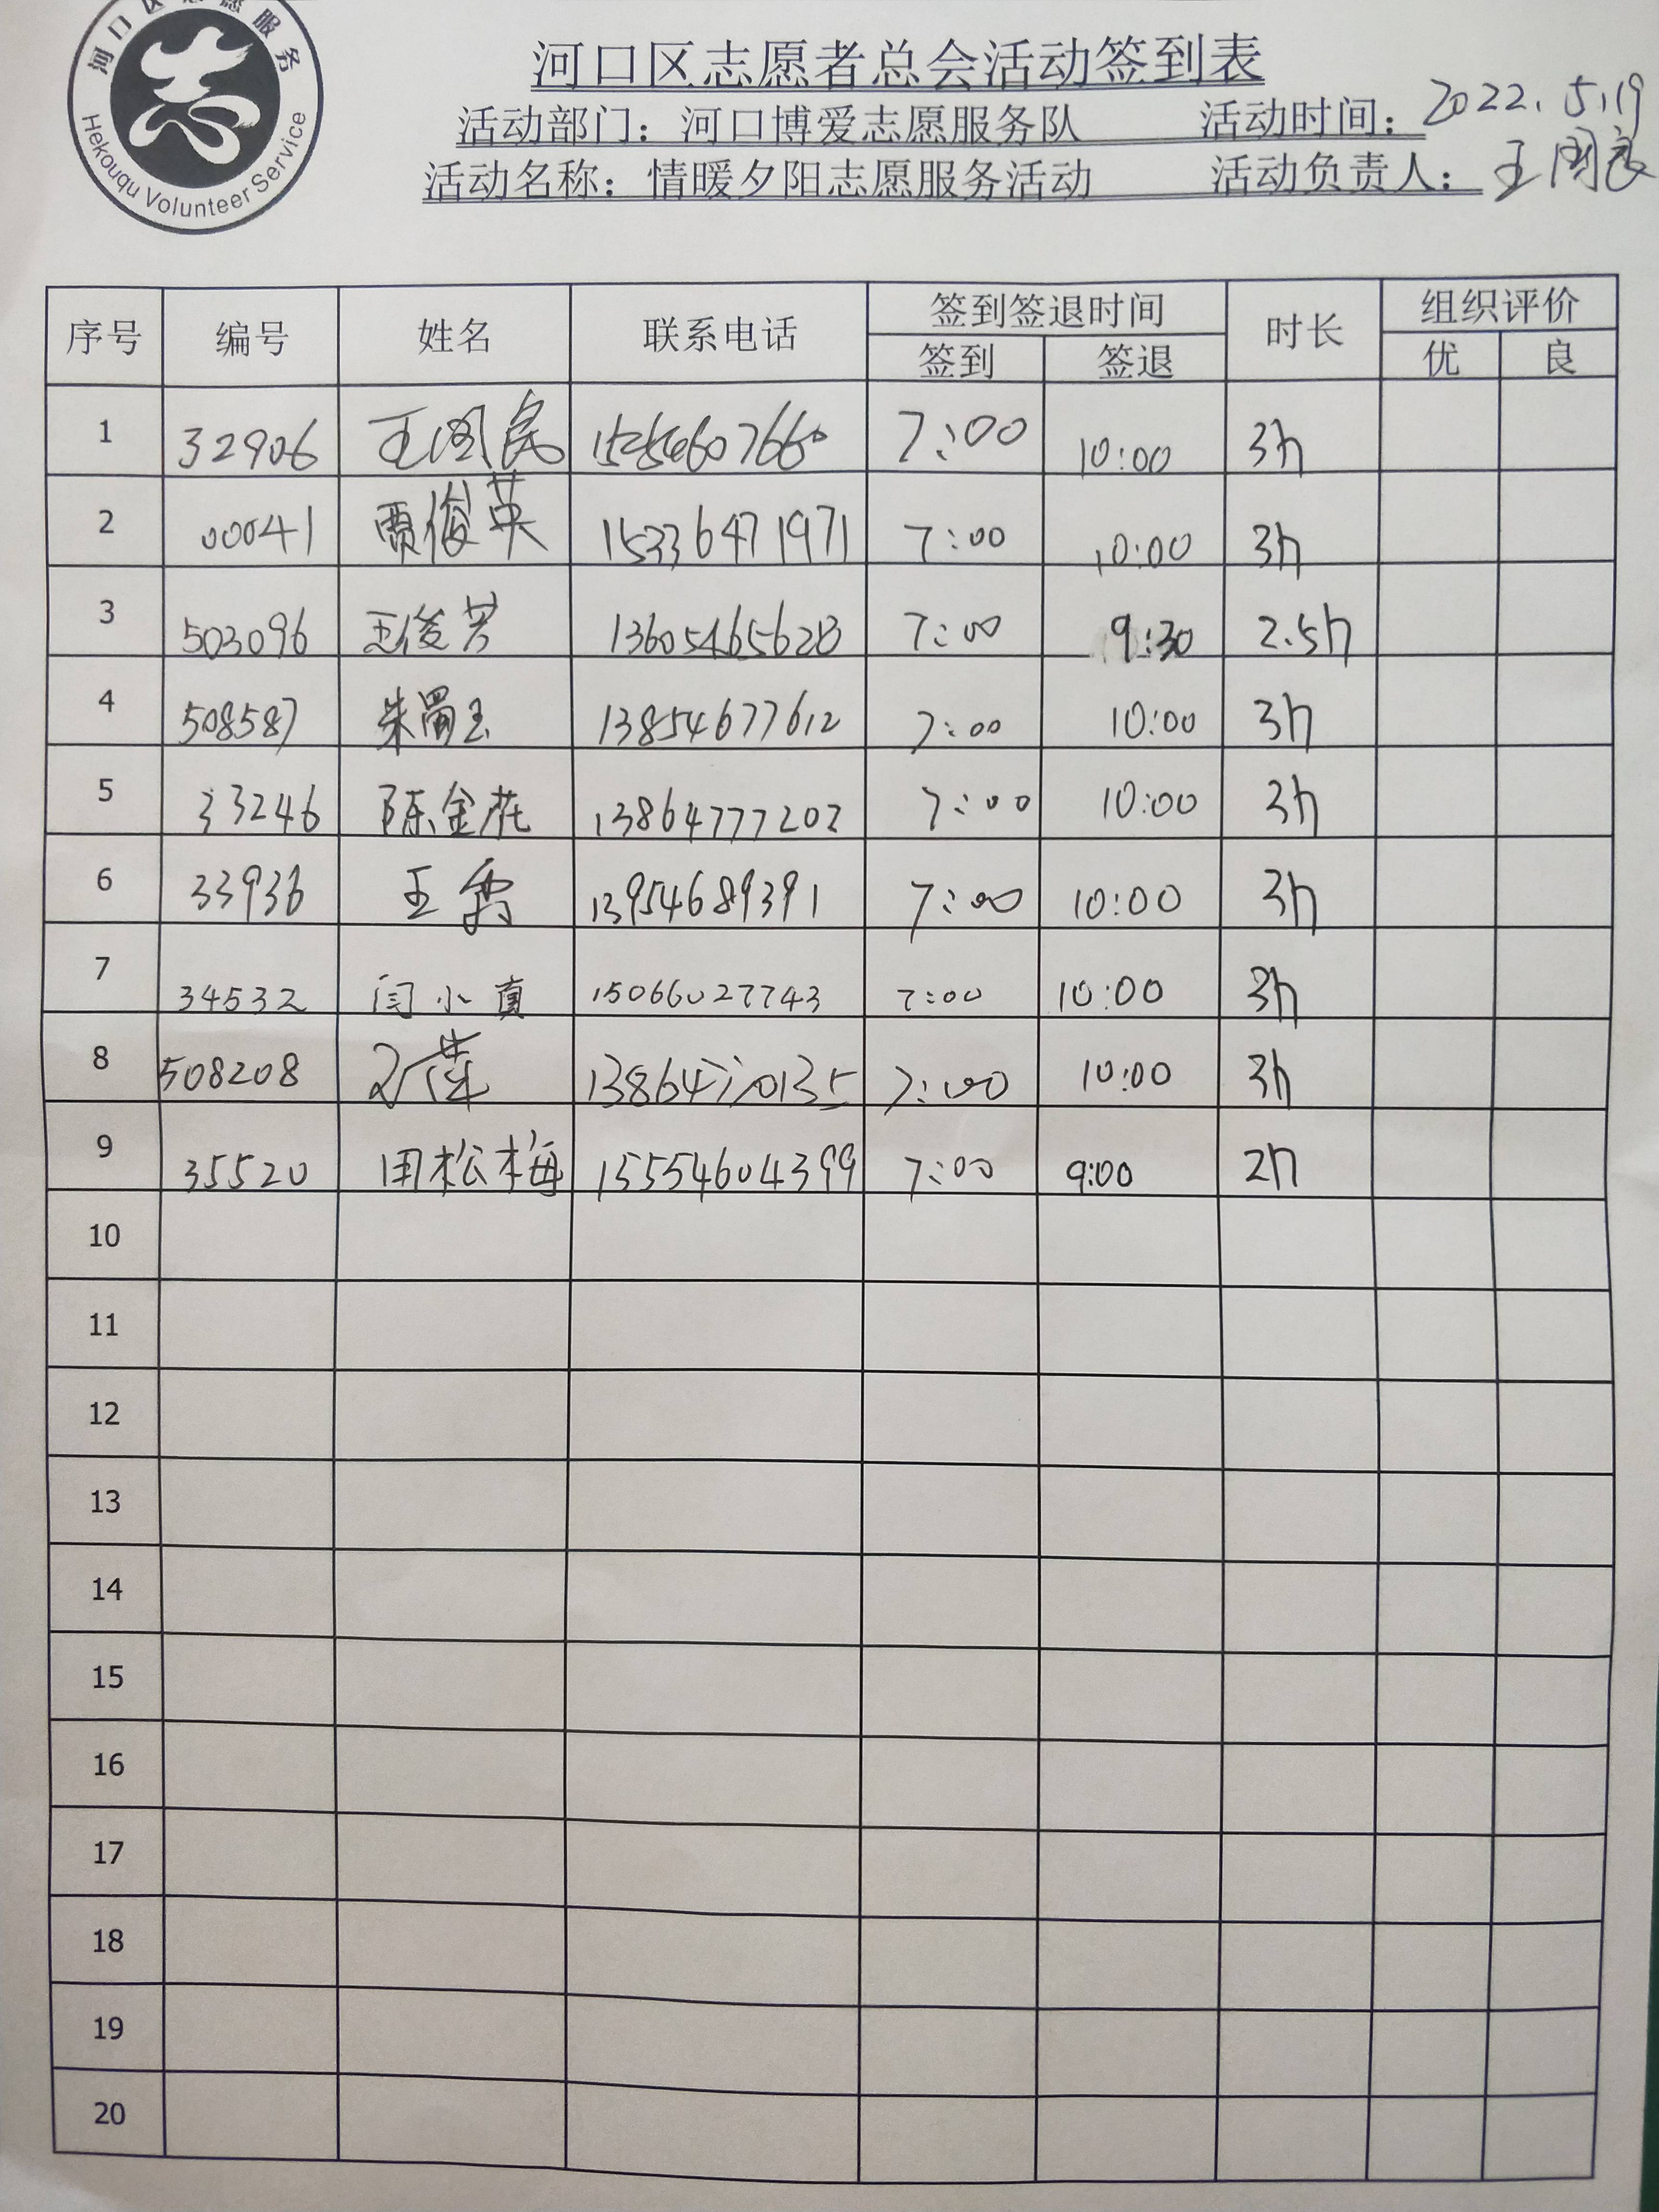 河口区志愿服务
Hekouqu Volunteer Service
河口区志愿者总会活动签到表
活动部门：河口博爱志愿服务队 活动时间：2022.5.19
活动名称：情暖夕阳志愿服务活动 活动负责人：王国良
序号 编号 姓名 联系电话 签到签退时间 时长 组织评价
签到 签退 优 良
1 32906 王国民 15254607660 7:00 10:00 3h
2 00041 贾俊英 15336471971 7:00 10:00 3h
3 503096 王俊芳 13605465628 7:00 9:30 2.5h
4 508587 朱蜀玉 13854677612 7:00 10:00 3h
5 33246 陈金花 13864777202 7:00 10:00 3h
6 33936 王雪 13954689391 7:00 10:00 3h
7 34532 闫小真 15066027743 7:00 10:00 3h
8 508208 7:00 10:00 3h
9 35520 田松梅 15554604399 7:00 9:00 2h
10
11
12
13
14
15
16
17
18
19
20